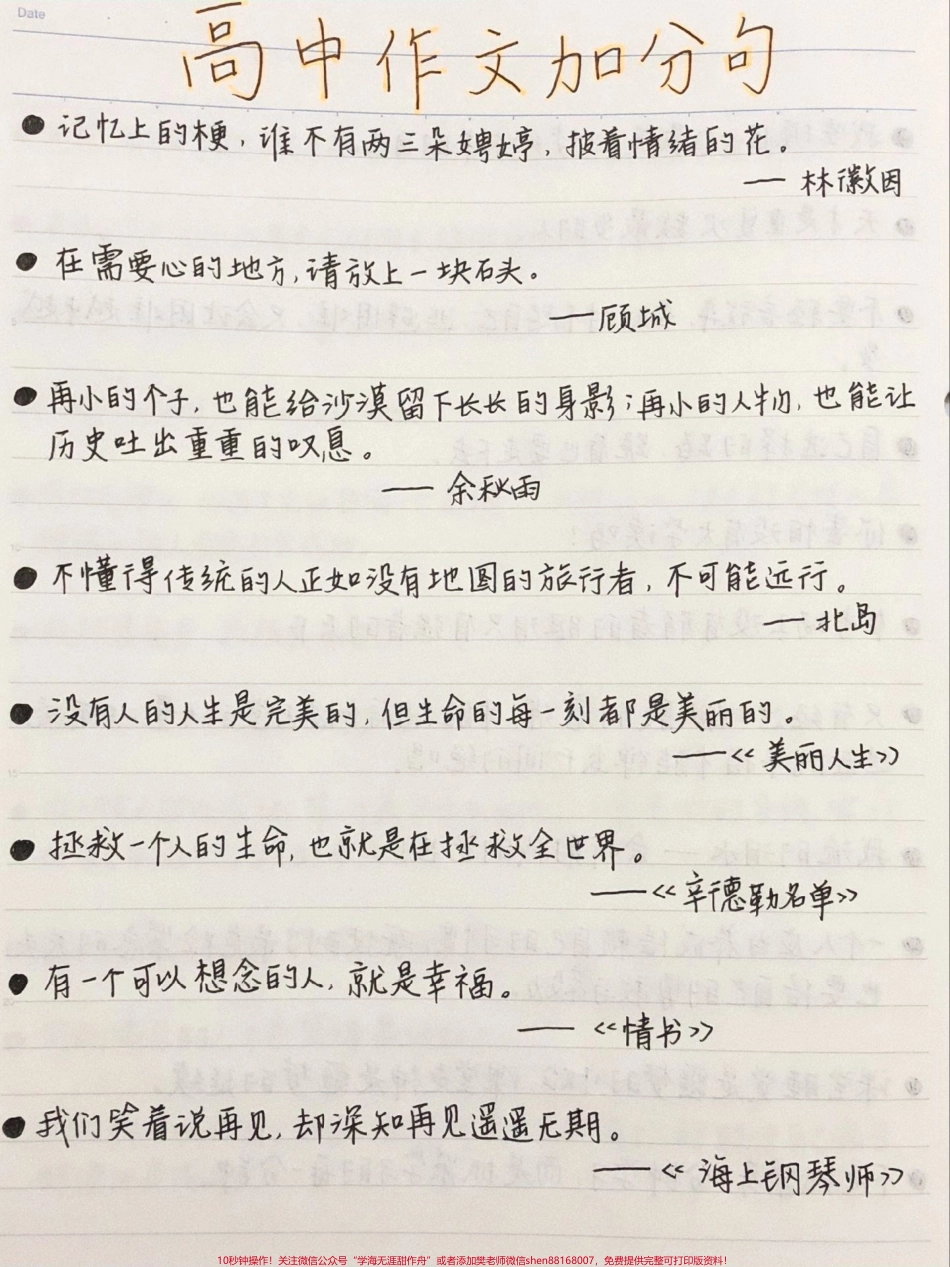 Date
高中作文加分句
●记忆上的梗，谁不有两三朵娉婷，披着情绪的花。
——林徽因
●在需要心的地方，请放上一块石头。
——顾城
●再小的个子，也能给沙漠留下长长的身影；再小的人物，也能让
历史吐出重重的叹息。
——余秋雨
●不懂得传统的人正如没有地图的旅行者，不可能远行。
——北岛
●没有人的人生是完美的，但生命的每一刻都是美丽的。
——《美丽人生》
●拯救一个人的生命，也就是在拯救全世界。
——《辛德勒名单》
●有一个可以想念的人，就是幸福。
——《情书》
●我们笑着说再见，却深知再见遥遥无期。
——《海上钢琴师》
10秒钟操作！关注微信公众号“学海无涯甜作舟”或者添加樊老师微信shen88168007，免费提供完整可打印版资料！